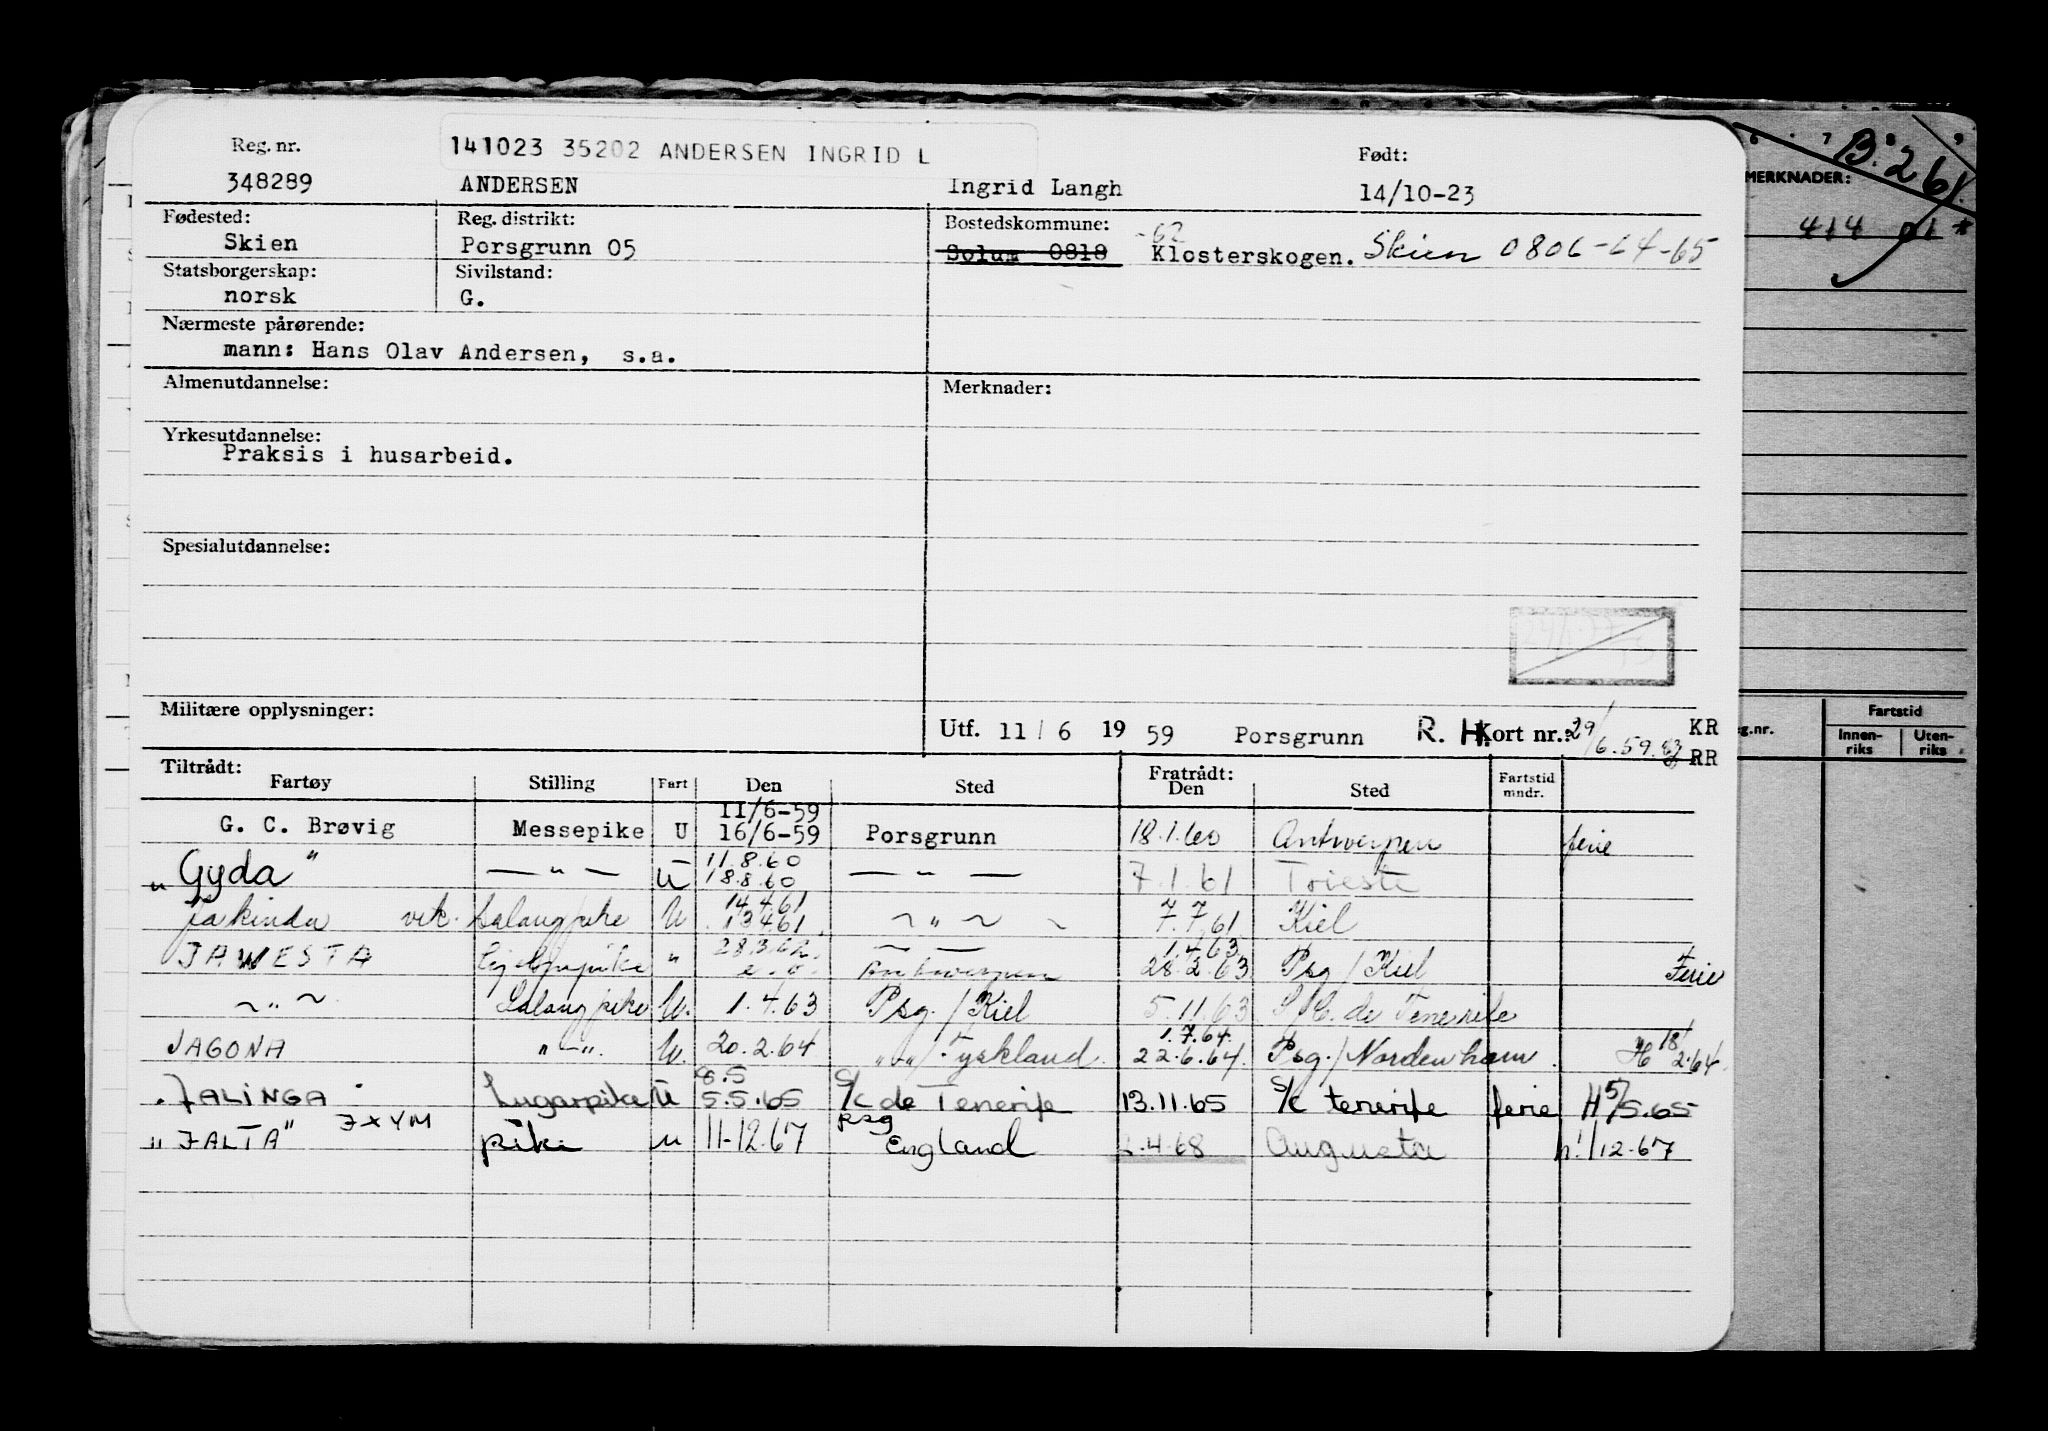 141023 35202 ANDERSEN INGRID L
Reg. nr. Født:
348289 ANDERSEN Ingrid Langh 14/10-23
Fødested: Reg. distrikt: Bostedskommune:
Skien Porsgrunn 05 Solum 0818 -62 Klosterskogen. Skien 0806-64-65
Statsborgerskap: Sivilstand:
norsk G.
Nærmeste pårørende:
mann: Hans Olav Andersen, s.a.
Almenutdannelse: Merknader:
Yrkesutdannelse:
Praksis i husarbeid.
Spesialutdannelse:
Militære opplysninger:
Utf. 11/6 1959 Porsgrunn R. H. Kort nr.: 29/6.59. KR
RR
Tiltrådt: Fratrådt:
Fartøy Stilling Fart Den Sted Den Sted Fartstid mndr.
11/6-59
G. C. Brøvig Messepike U 16/6-59 Porsgrunn 18.1.60 Antwerpen ferie
11.8.60
"Gyda" — " — U 18.8.60 — " — 7.1.61 Trieste
14.4.61
Jakinda vik. Salongpike U 13.4.61 ~ " ~ 7.7.61 Kiel
28.3.62 1.4.63
JAWESTA " Antwerpen 28.2.63 Psg / Kiel Ferie
~ " ~ Salongpike U. 1.4.63 Psg. / Kiel 5.11.63 S/C. de Tenerife
1.7.64.
JAGONA " — " U. 20.2.64 " — " / Tyskland. 22.6.64. Psg. / Nordenham. H 18/2.64.
8.5
"JALINGA" Lugarpike U 5.5.65 S/c de Tenerife 13.11.65 S/c tenerife ferie H 5/5.65
"JALTA" JXYM pike u 11-12.67 psg England 4.68 Augusta h. 1/12-67
B. 261.
MERKNADER:
414 01 *
Fartstid
Innenriks Utenriks